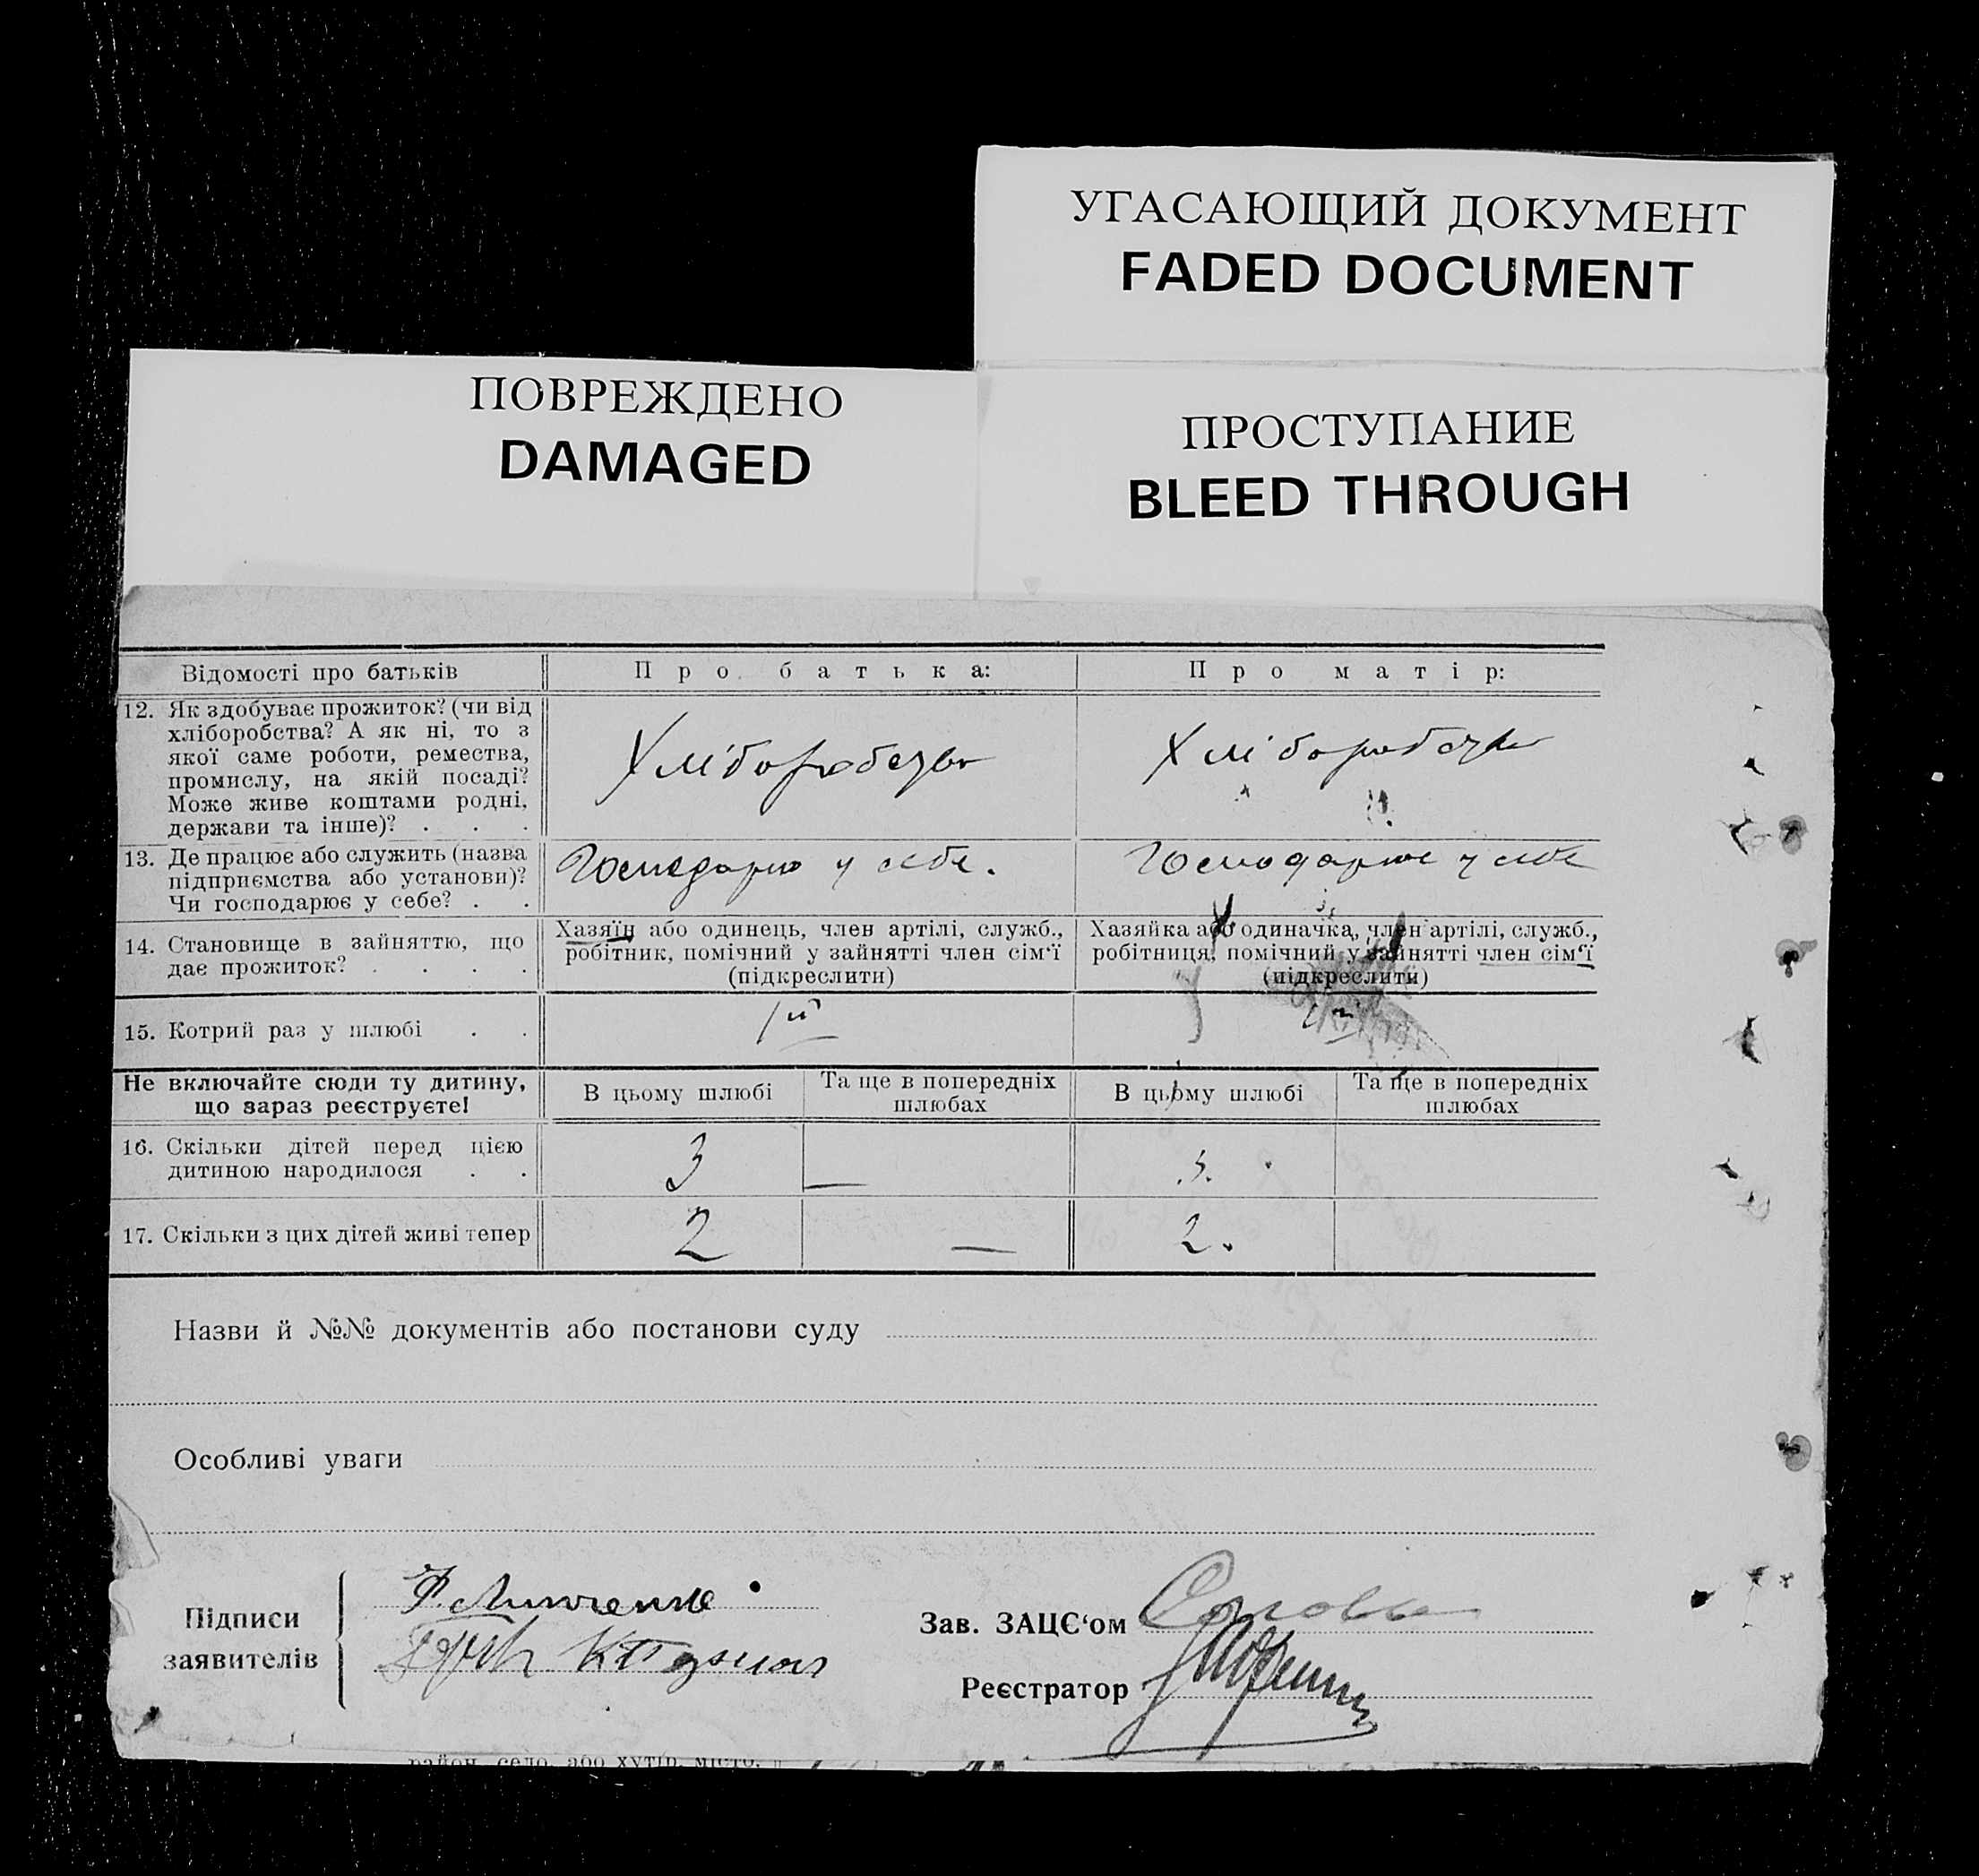 УГАСАЮЩИЙ ДОКУМЕНТ
FADED DOCUMENT
ПОВРЕЖДЕНО
DAMAGED
ПРОСТУПАНИЕ
BLEED THROUGH
Відомості про батьків
Про батька:
Про матір:
12. Як здобуває прожиток? (чи від
хліборобства? А як ні, то з
якої саме роботи, ремества,
промислу, на якій посаді?
Може живе коштами родні,
держави та інше)? . . .
Хліборобство
Хліборобство
13. Де працює або служить (назва
підприємства або установи)?
Чи господарює у себе? . .
Господарює у себе.
Господарює у себе
14. Становище в зайняттю, що
дає прожиток? . . . .
Хазяїн або одинець, член артілі, служб.,
робітник, помічний у зайнятті член сім‘ї
(підкреслити)
Хазяйка або одиначка, член артілі, служб.,
робітниця, помічний у зайнятті член сім‘ї
(підкреслити)
15. Котрий раз у шлюбі . .
1й
Не включайте сюди ту дитину,
що зараз реєструєте!
В цьому шлюбі
Та ще в попередніх
шлюбах
В цьому шлюбі
Та ще в попередніх
шлюбах
16. Скільки дітей перед цією
дитиною народилося . .
3
—
3.
17. Скільки з цих дітей живі тепер
2
—
2.
Назви й №№ документів або постанови суду
Особливі уваги
Підписи
заявителів
Зав. ЗАЦС‘ом
Реєстратор
район, село, або хутір, місто.